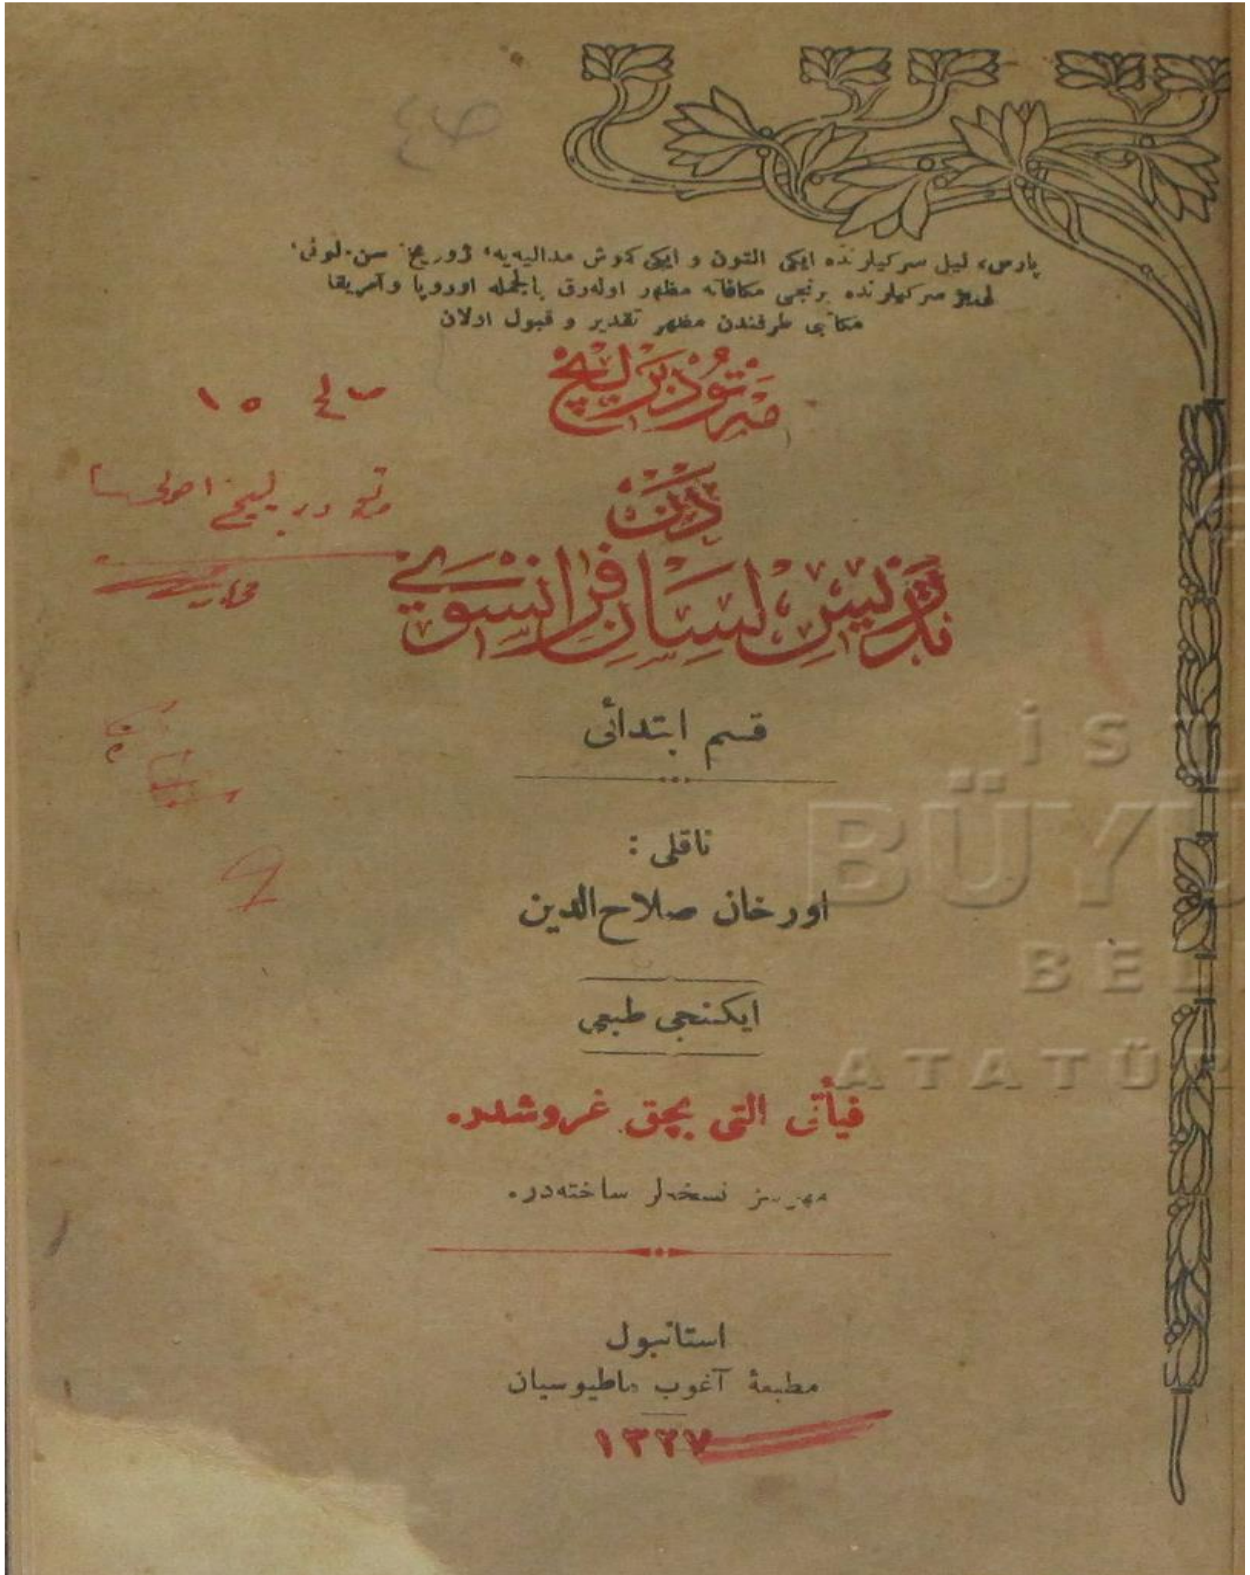 پارس، لیل سرکیلرنده ایکی التون و ایکی کوش مدالیه‌یه، زوریخ، سن-لوئی،
لی‌یژ سرکیلرنده برنجی مکافاته مظهر اوله‌رق بالجمله اوروپا و آمریقا
مکاتبی طرفندن مظهر تقدیر و قبول اولان
مه‌تود برلیچ
دن
تدریس لسان فرانسوی
قسم ابتدائی
ناقلی :
اورخان صلاح‌الدین
ایکنجی طبعی
فیأتی التی بچق غروشدر.
مهرسز نسخه‌لر ساخته‌در.
استانبول
مطبعهٔ آغوب ماطیوسیان
١٣٢٧
١٥
İS
BÜYÜ
BEL
ATATÜR